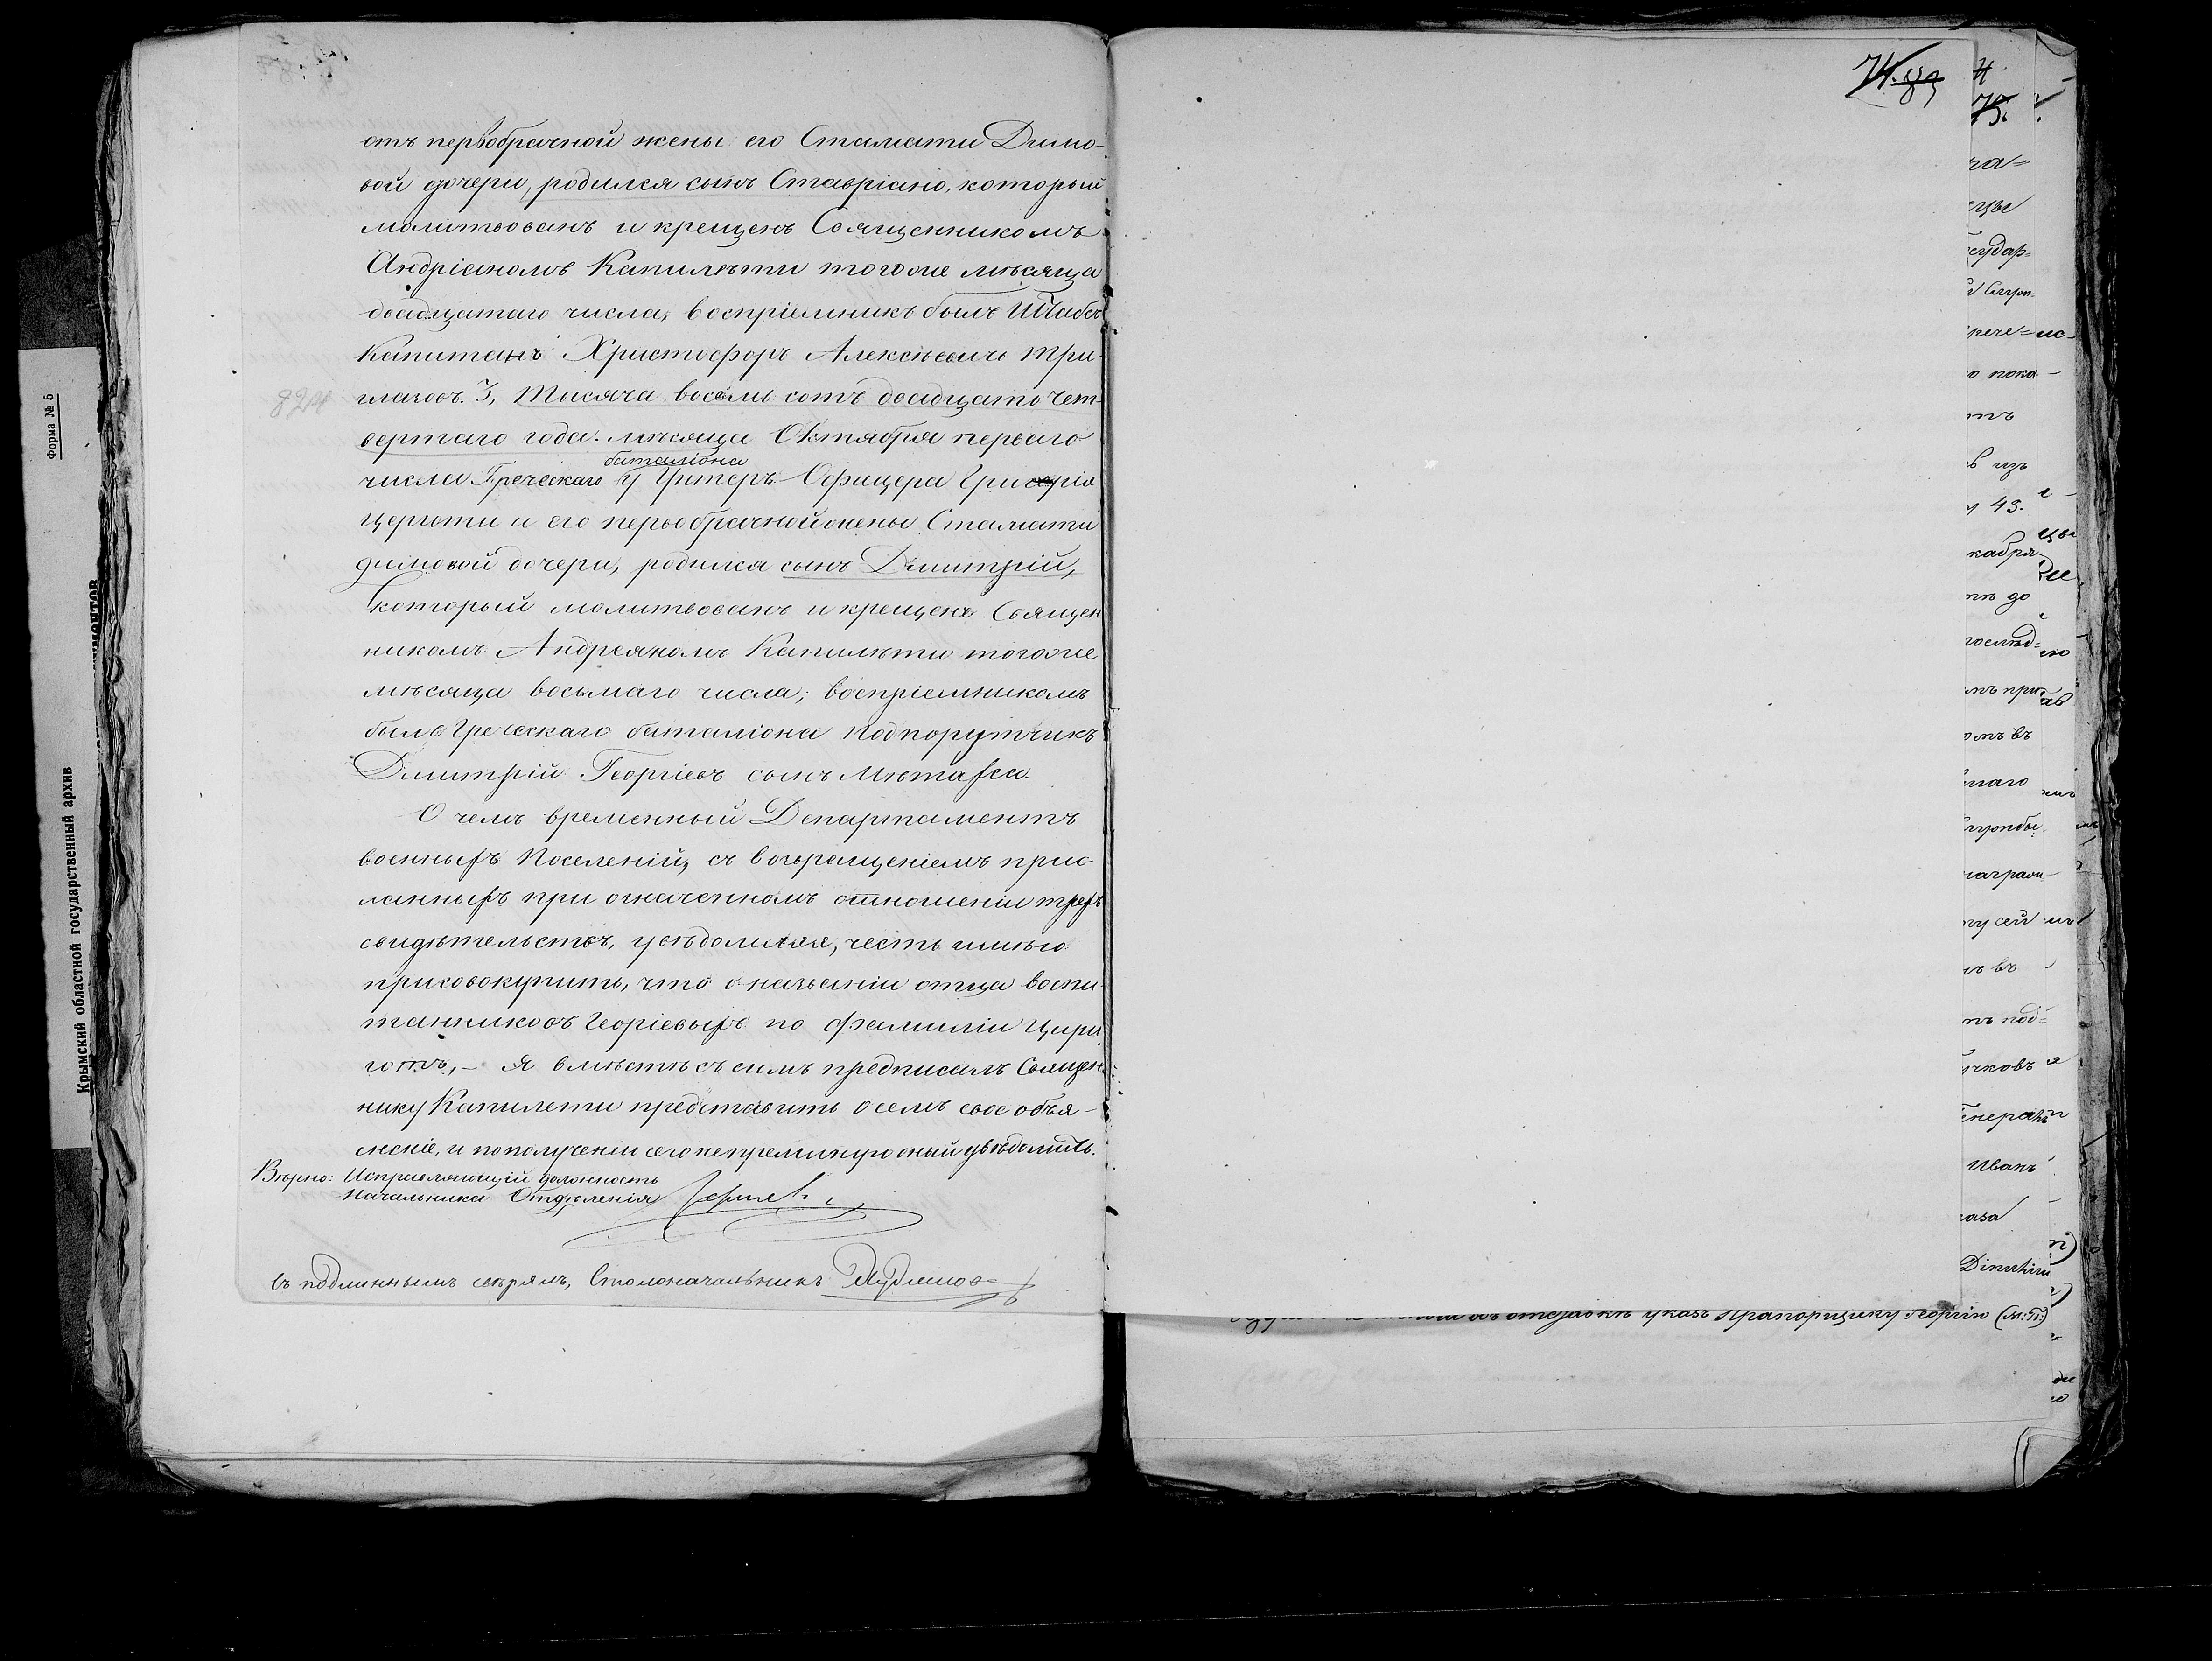 отъ первобрачной жены его Стамати Димо-
вой дочери, родился сынъ Ставріано, который
молитвованъ и крещенъ Священникомъ
Андріаномъ Капилѣти тогоже мѣсяца
двадцатаго числа, воспріемникъ былъ Штабсъ
Капитанъ Христофоръ Алексѣевичъ Три-
глазовъ. 3, Тысяча восемь сотъ двадцать чет-
824
вертаго года. мѣсяца Октября перваго
баталіона
числа Греческаго у Унтеръ-Офицера
и его первобрачной жены Стамати
димовой дочери, родился сынъ Дмитрій,
который молитвованъ и крещенъ Священ
никомъ Андреяномъ Капилѣти тогоже
мѣсяца восьмаго числа; воспріемникомъ
былъ Греческаго баталіона подпорутчикъ
Дмитрій Георгіевъ сынъ Мѣтакса.
О чемъ временный Департаментъ
военныхъ Поселеній, съ возвращеніемъ прис
ланныхъ при означенномъ отношеніи трехъ
свидѣтельствъ, увѣдомляя, честь имѣю
присовокупить, что о названіи отца воспи
танниковъ Георгіевыхъ по фамиліи Цири
готъ, - я вмѣстѣ съ симъ предписалъ Священ
нику Капилети представить о семъ свое объя-
сненіе, и по полученіи сего непремину оный увѣдомить.
Вѣрно: Исправляющій должность
Начальника Отдѣленія
съ подлиннымъ свѣрялъ, Столоначальникъ
74. 83
75.
ча=
судар=
рече=
ис-
о пока-
тъ
ъ изъ
и 43.
кабря
тъ до
послѣд=
мъ при
омъ въ
наго
награди-
у сей
ъ въ
тъ под=
чковъ
енералъ
Иванъ
каза
отставкѣ указъ Прапорщику Георгію (М:П:)
Форма № 5
Крымский областной государственный архив